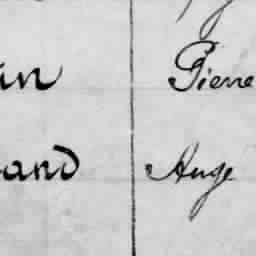 in Pierre
and Ange